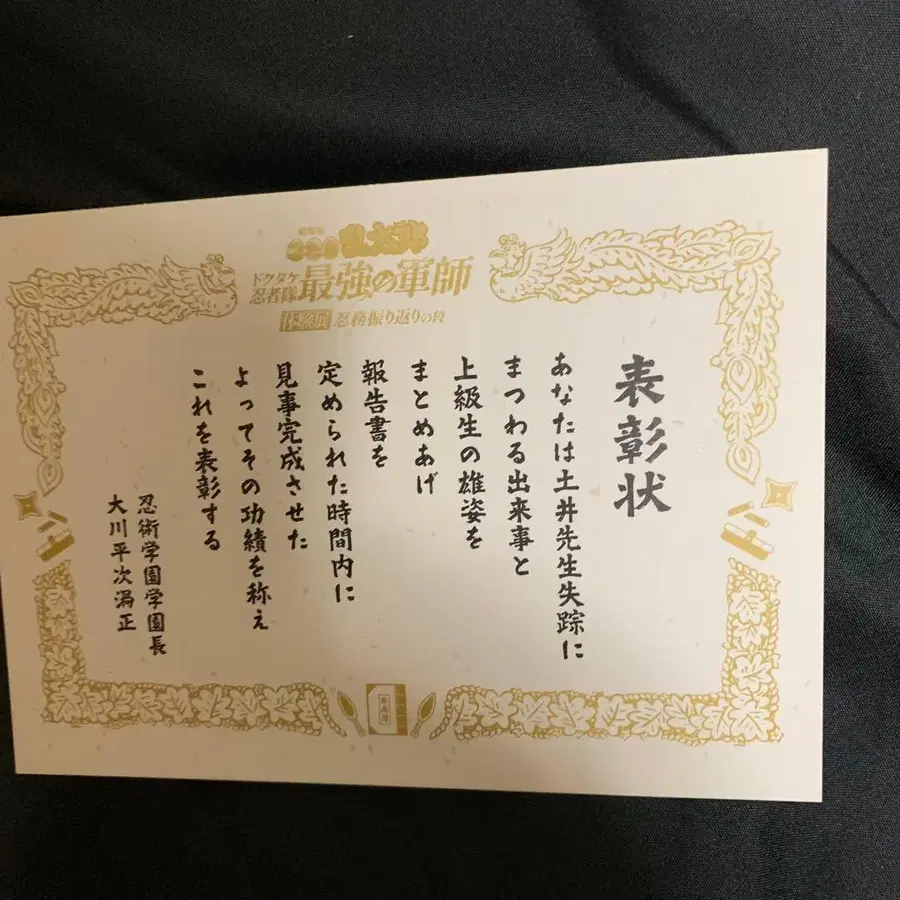 劇場版
忍たま乱太郎
ドクタケ
忍者隊
最強の軍師
体験展 忍務振り返りの段
表彰状
あなたは土井先生失踪に
まつわる出来事と
上級生の雄姿を
まとめあげ
報告書を
定められた時間内に
見事完成させた
よってその功績を称え
これを表彰する
忍術学園学園長
大川平次渦正